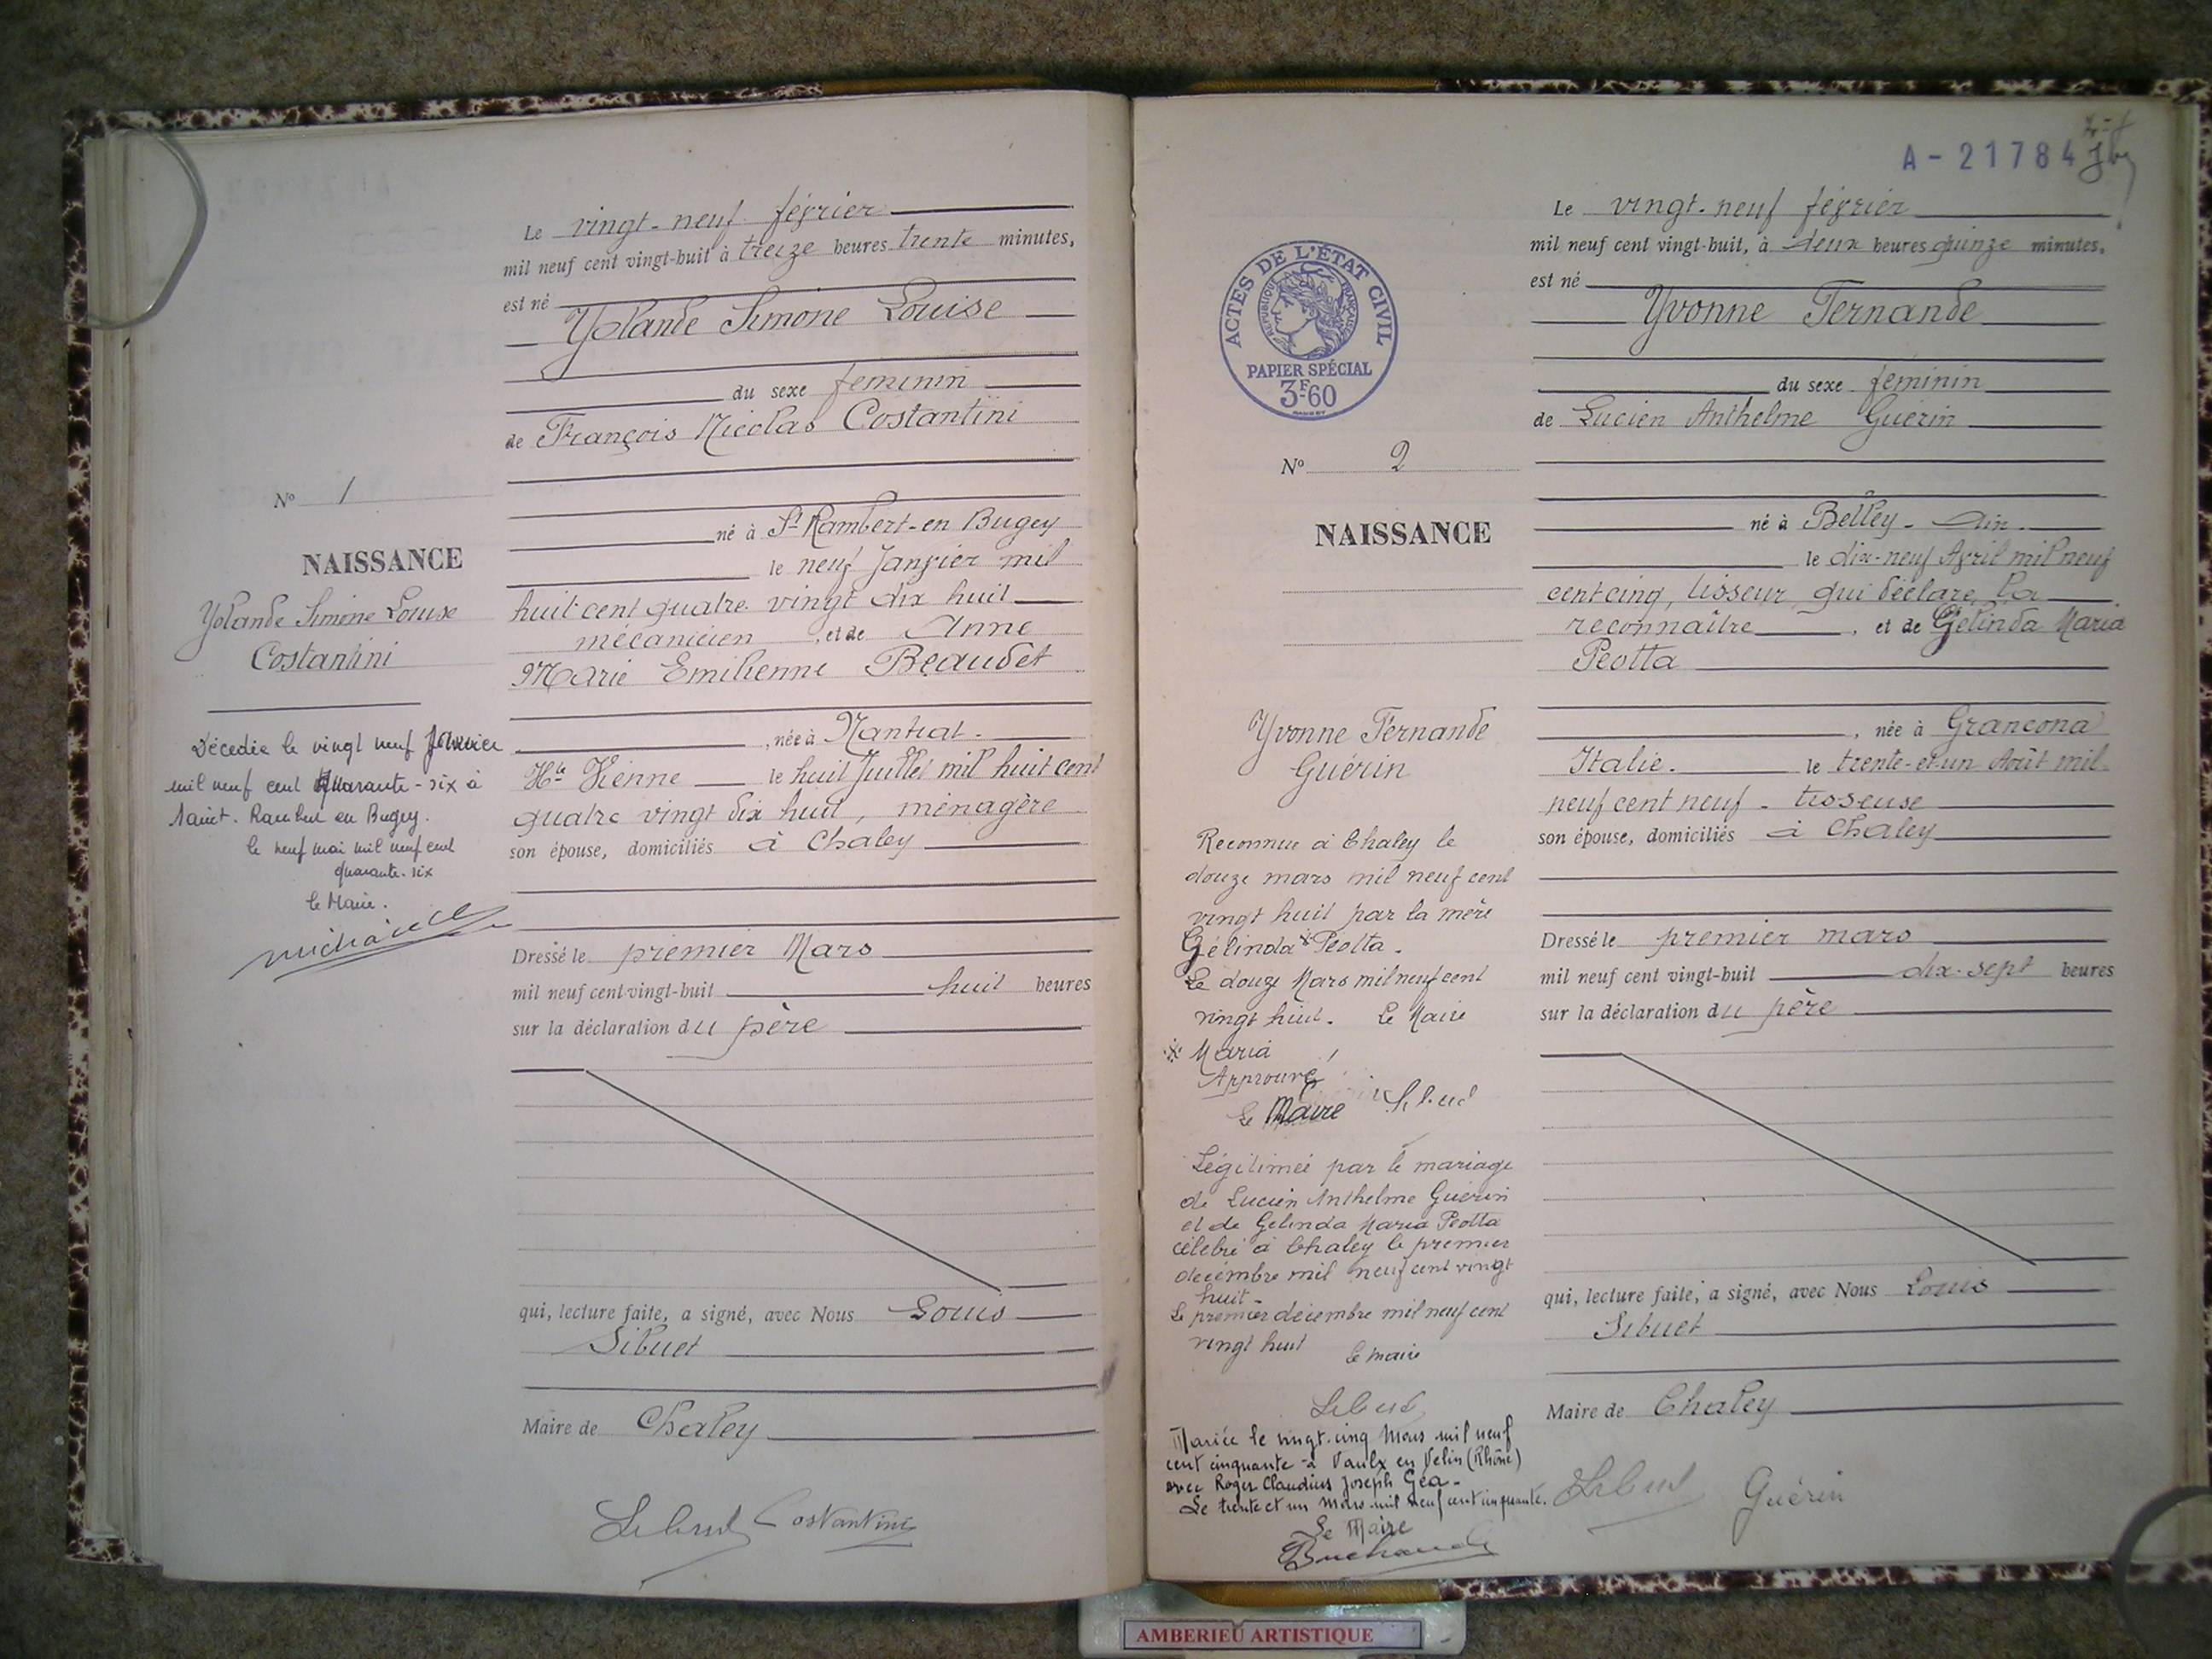 Le vingt-neuf février
mil neuf cent vingt-huit à treize heures trente minutes,
est né
Yolande Simone Louise
du sexe féminin
de François Nicolas Costantini
né à St Rambert-en Bugey
le neuf Janvier mil
huit cent quatre vingt dix huit
mécanicien, et de Anne
Marie Emilienne Beaudet
, née à Nantiat -
Hte Vienne le huit Juillet mil huit cent
quatre vingt dix huit, ménagère
son épouse, domiciliés à Chaley
Dressé le premier Mars
mil neuf cent vingt-huit huit heures
sur la déclaration du père
qui, lecture faite, a signé, avec Nous Louis
Sibuet
Maire de Chaley
Sibuet Costantini
No 1
NAISSANCE
Yolande Simone Louise
Costantini
Décédée le vingt neuf Janvier
mil neuf cent quarante-six à
Saint. Rambert en Bugey.
le neuf mai mil neuf cent
quarante-six
le Maire.
A-21784
ACTES DE L'ÉTAT CIVIL
RÉPUBLIQUE FRANÇAISE
PAPIER SPÉCIAL
3F60
No 2
NAISSANCE
Yvonne Fernande
Guérin
Reconnue à Chaley le
douze mars mil neuf cent
vingt huit par la mère
Gélinda * Peotta.
Le douze Mars mil neuf cent
vingt huit. Le Maire
* Maria
Approuvé
Le Maire Sibuet
Légitimée par le mariage
de Lucien Anthelme Guérin
et de Gelinda Maria Peotta
célébré à Chaley le premier
décembre mil neuf cent vingt
huit -
Le premier décembre mil neuf cent
vingt huit Le maire
Sibuet
Mariée le vingt-cinq Mars mil neuf
cent cinquante à Vaulx en Velin (Rhône)
avec Roger Claudius Joseph Géa -
Le trente et un Mars mil neuf cent cinquante.
Le Maire
Le vingt-neuf février
mil neuf cent vingt-huit, à deux heures quinze minutes,
est né
Yvonne Fernande
du sexe féminin
de Lucien Anthelme Guérin
né à Belley - Ain.
le dix-neuf Avril mil neuf
cent cinq, tisseur qui déclare la
reconnaître, et de Gélinda Maria
Peotta
, née à Grancona
Italie. le trente-et-un Août mil
neuf cent neuf - tisseuse
son épouse, domiciliés à Chaley
Dressé le premier mars
mil neuf cent vingt-huit dix-sept heures
sur la déclaration du père
qui, lecture faite, a signé, avec Nous Louis
Sibuet
Maire de Chaley
Sibuet Guérin
AMBERIEU ARTISTIQUE